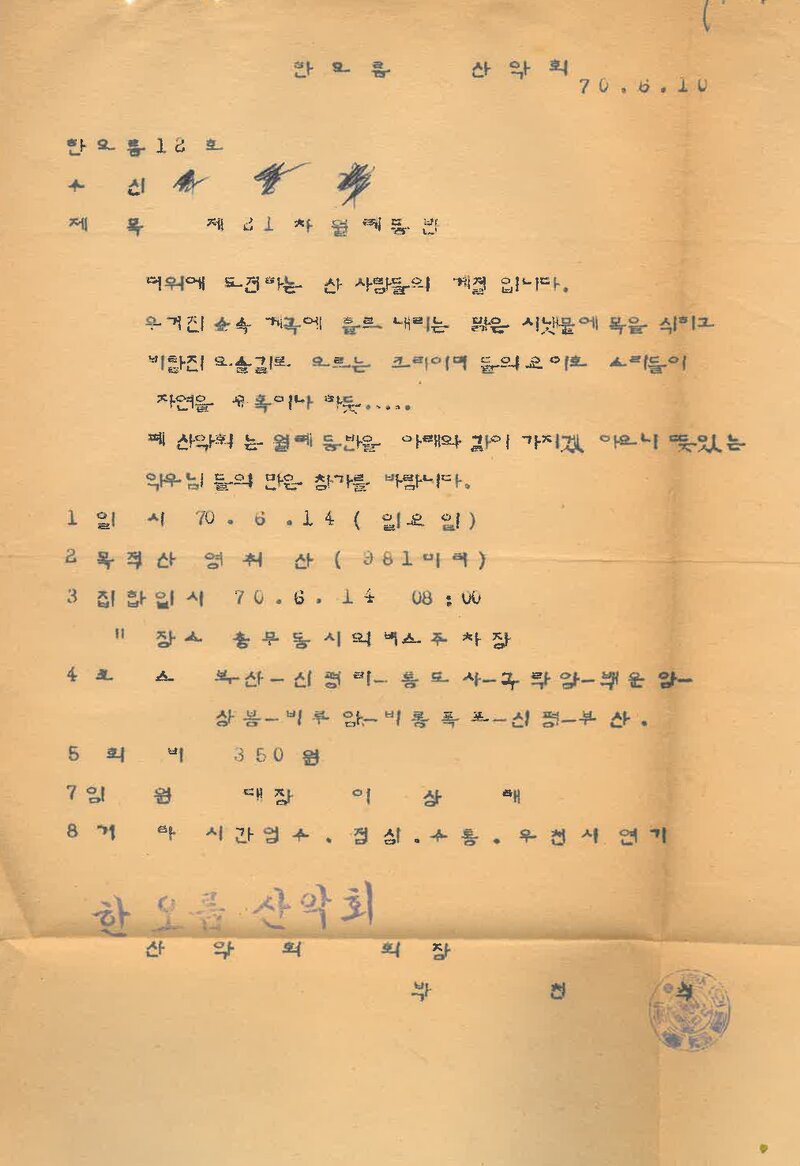 한오름 산악회
70.6.10
한오름12호
수신
제목 제21차월레등반
더위에 도전하는 산 사람들의 계절 입니다.
우거진 숲속 계곡에 흘르 내리는 맑은 시냇물에 목을 식히고
비탈진 오솔길로 오르는 크라이머 들의요이호 소리들이
자연을 유혹이나 하듯.....
폐 산악회는 월례등반을 아래와 같이 가지겠 아오니 뜻있는
악우님 들의 만은 참가를 바람니다.
1 일시 70.6.14(일요일)
2 목적산 영취산(981미터)
3 집합일시 70.6.14 08:00
" 장소 충무동시외버스주차장
4 코스 부산-신평리-통도사-극락암-백운암-
상봉-비루암-비룡폭포-신평-부산.
5 회비 350원
7임원 대장 이상해
8 기타 시간엄수.점심.수통.우천시연기
한오름 산악회
산악회 회장
박천